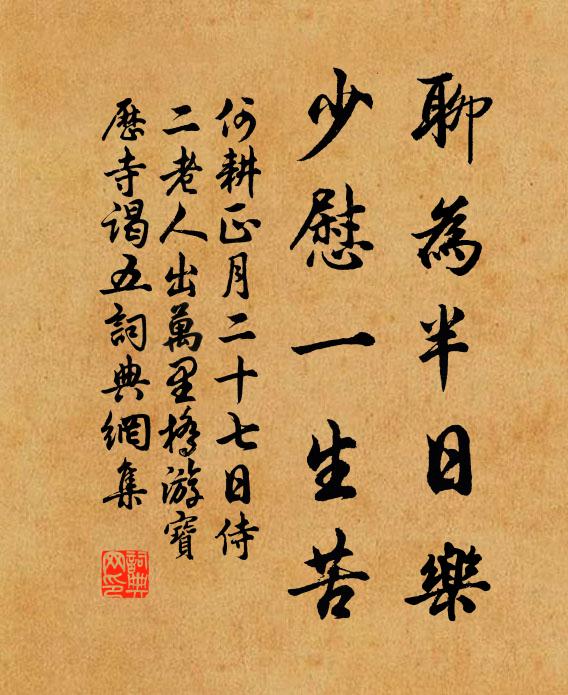 聊為半日樂
少慰一生苦
何耕正月二十七日侍
二老人出萬里橋游寶
歷寺謁五詞典網集
詞典網印